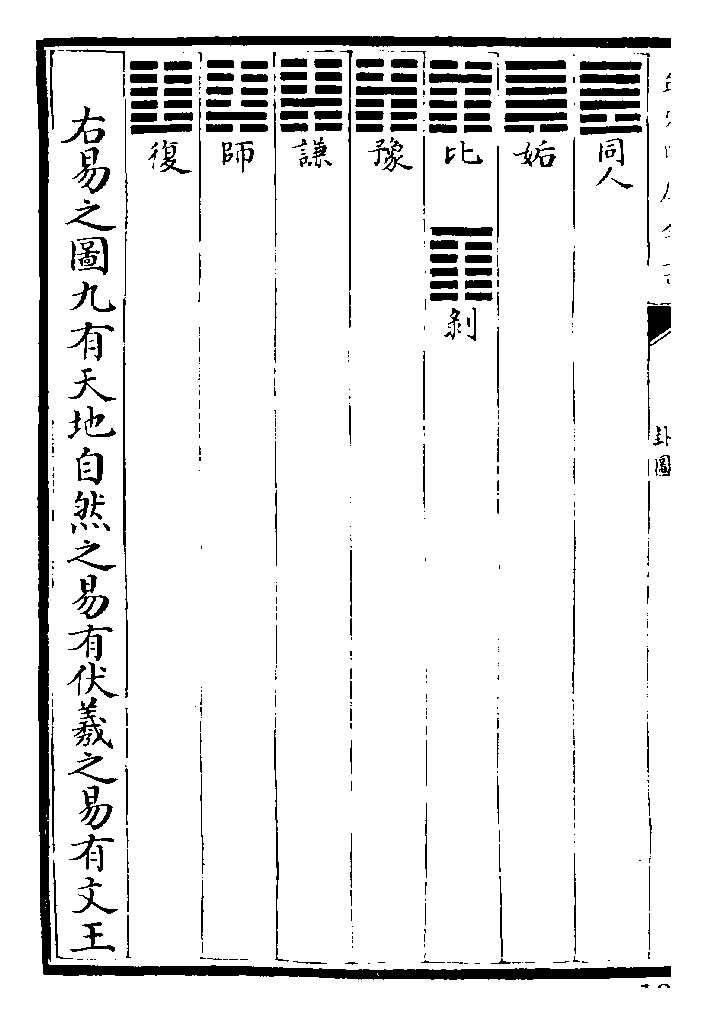 卦圖
同人
姤
比
剝
豫
謙
師
復
右易之圖九有天地自然之易有伏羲之易有文王